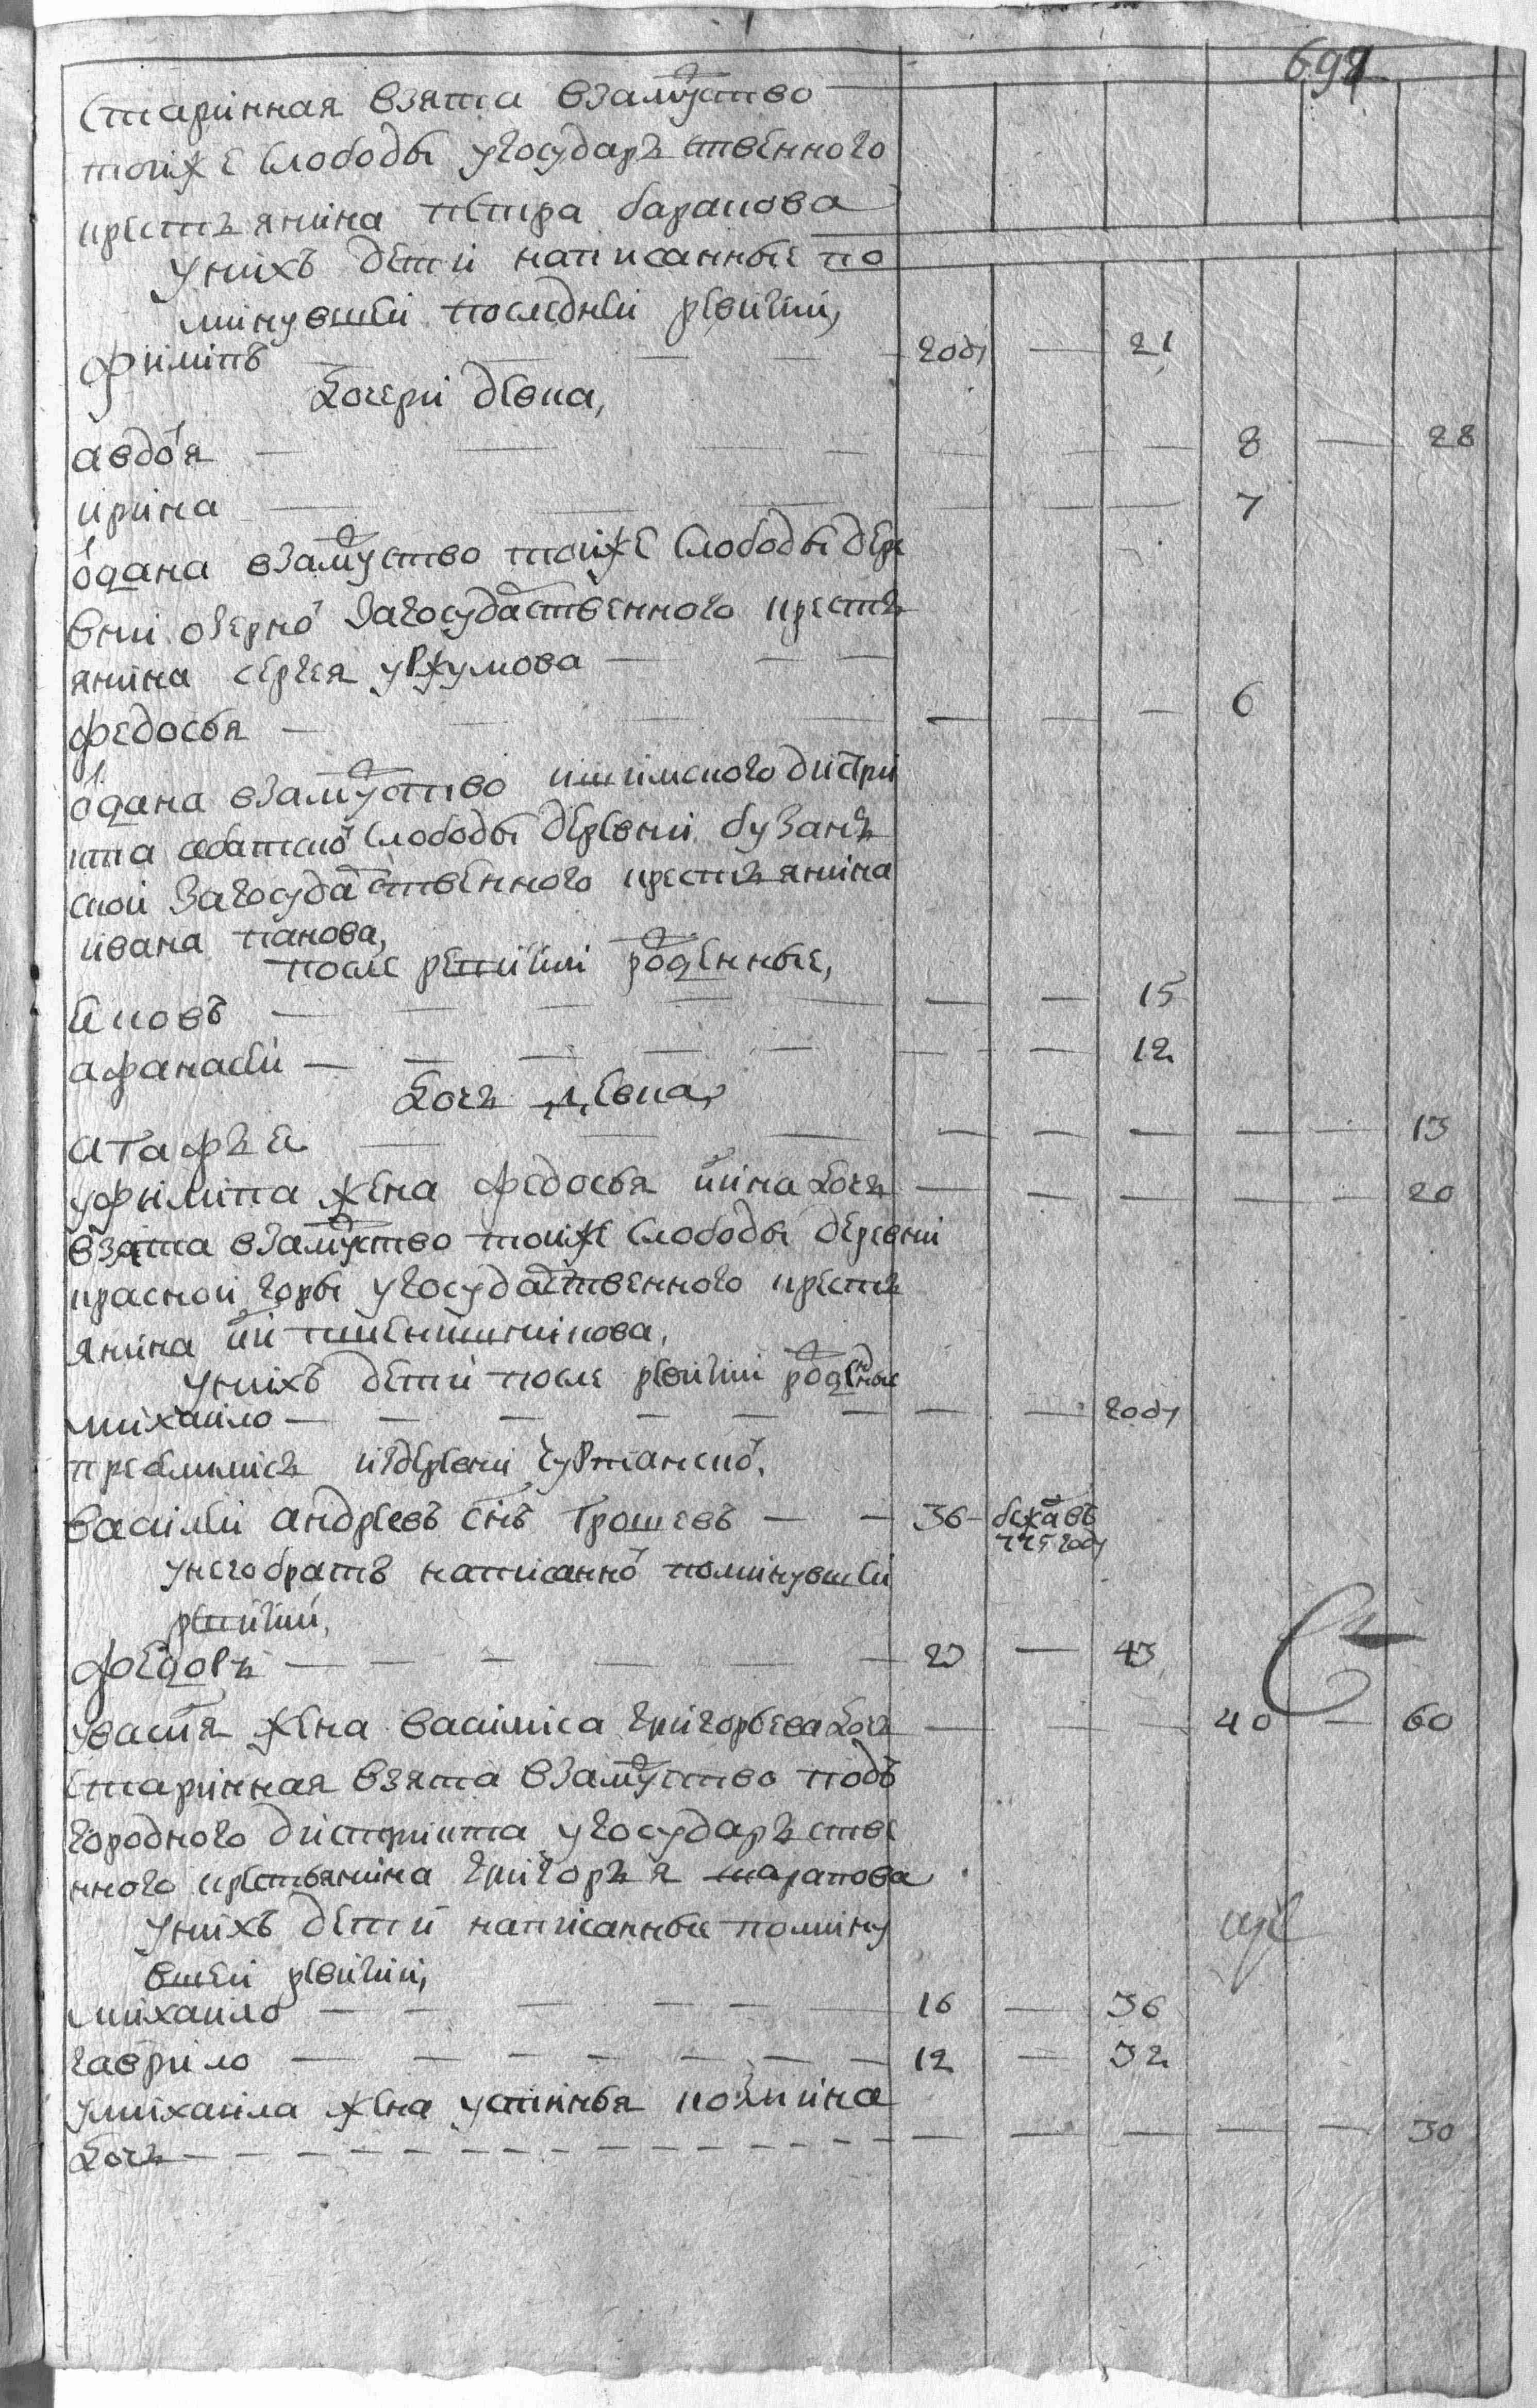 697
Старинная взята взамуство
тойже слободы угосударъственного
крестъянина петра баранова
Унихъ дети написанные по
минувшей последней ревизии,
филипъ — году — 21
дочери девка,
авдотя — 8 — 28
ирина — 7
одана взамуство тойже слободы дере
вни озерно загосударственного кресть
янина сергея уржумова
федосья — 6
одана взамуство ишимского дистри
кта абатско слободы деревни бузанъ
ской загосударственного крестъянина
ивана панова,
после ревизии роденные,
яковъ — 15
афанасей — 12
дочь девка,
агафья — 13
уфилипа жена федосья дочь — 20
взята взамуство тойже слободы деревни
красной горы угосударственного кресть
янина пшенишникова,
Унихъ дети после ревизии роденные
михайло — году
преселились издеревни
василей андреевъ снъ трошевъ — 36 — бежавъ
775 году
унего братъ написанно поминувшей
ревизии,
федоръ — 23 — 43
увасиля жена василиса григорьева дочь — 40 — 60
старинная взята взамуство подъ
городного дистрикта угосударъстве
нного крестьянина григоръя шарапова
Унихъ дети написанные помину
вшей ревизии,
михайло — 16 — 36
гаврило — 12 — 32
умихайла жена устинья козмина
дочь — 30